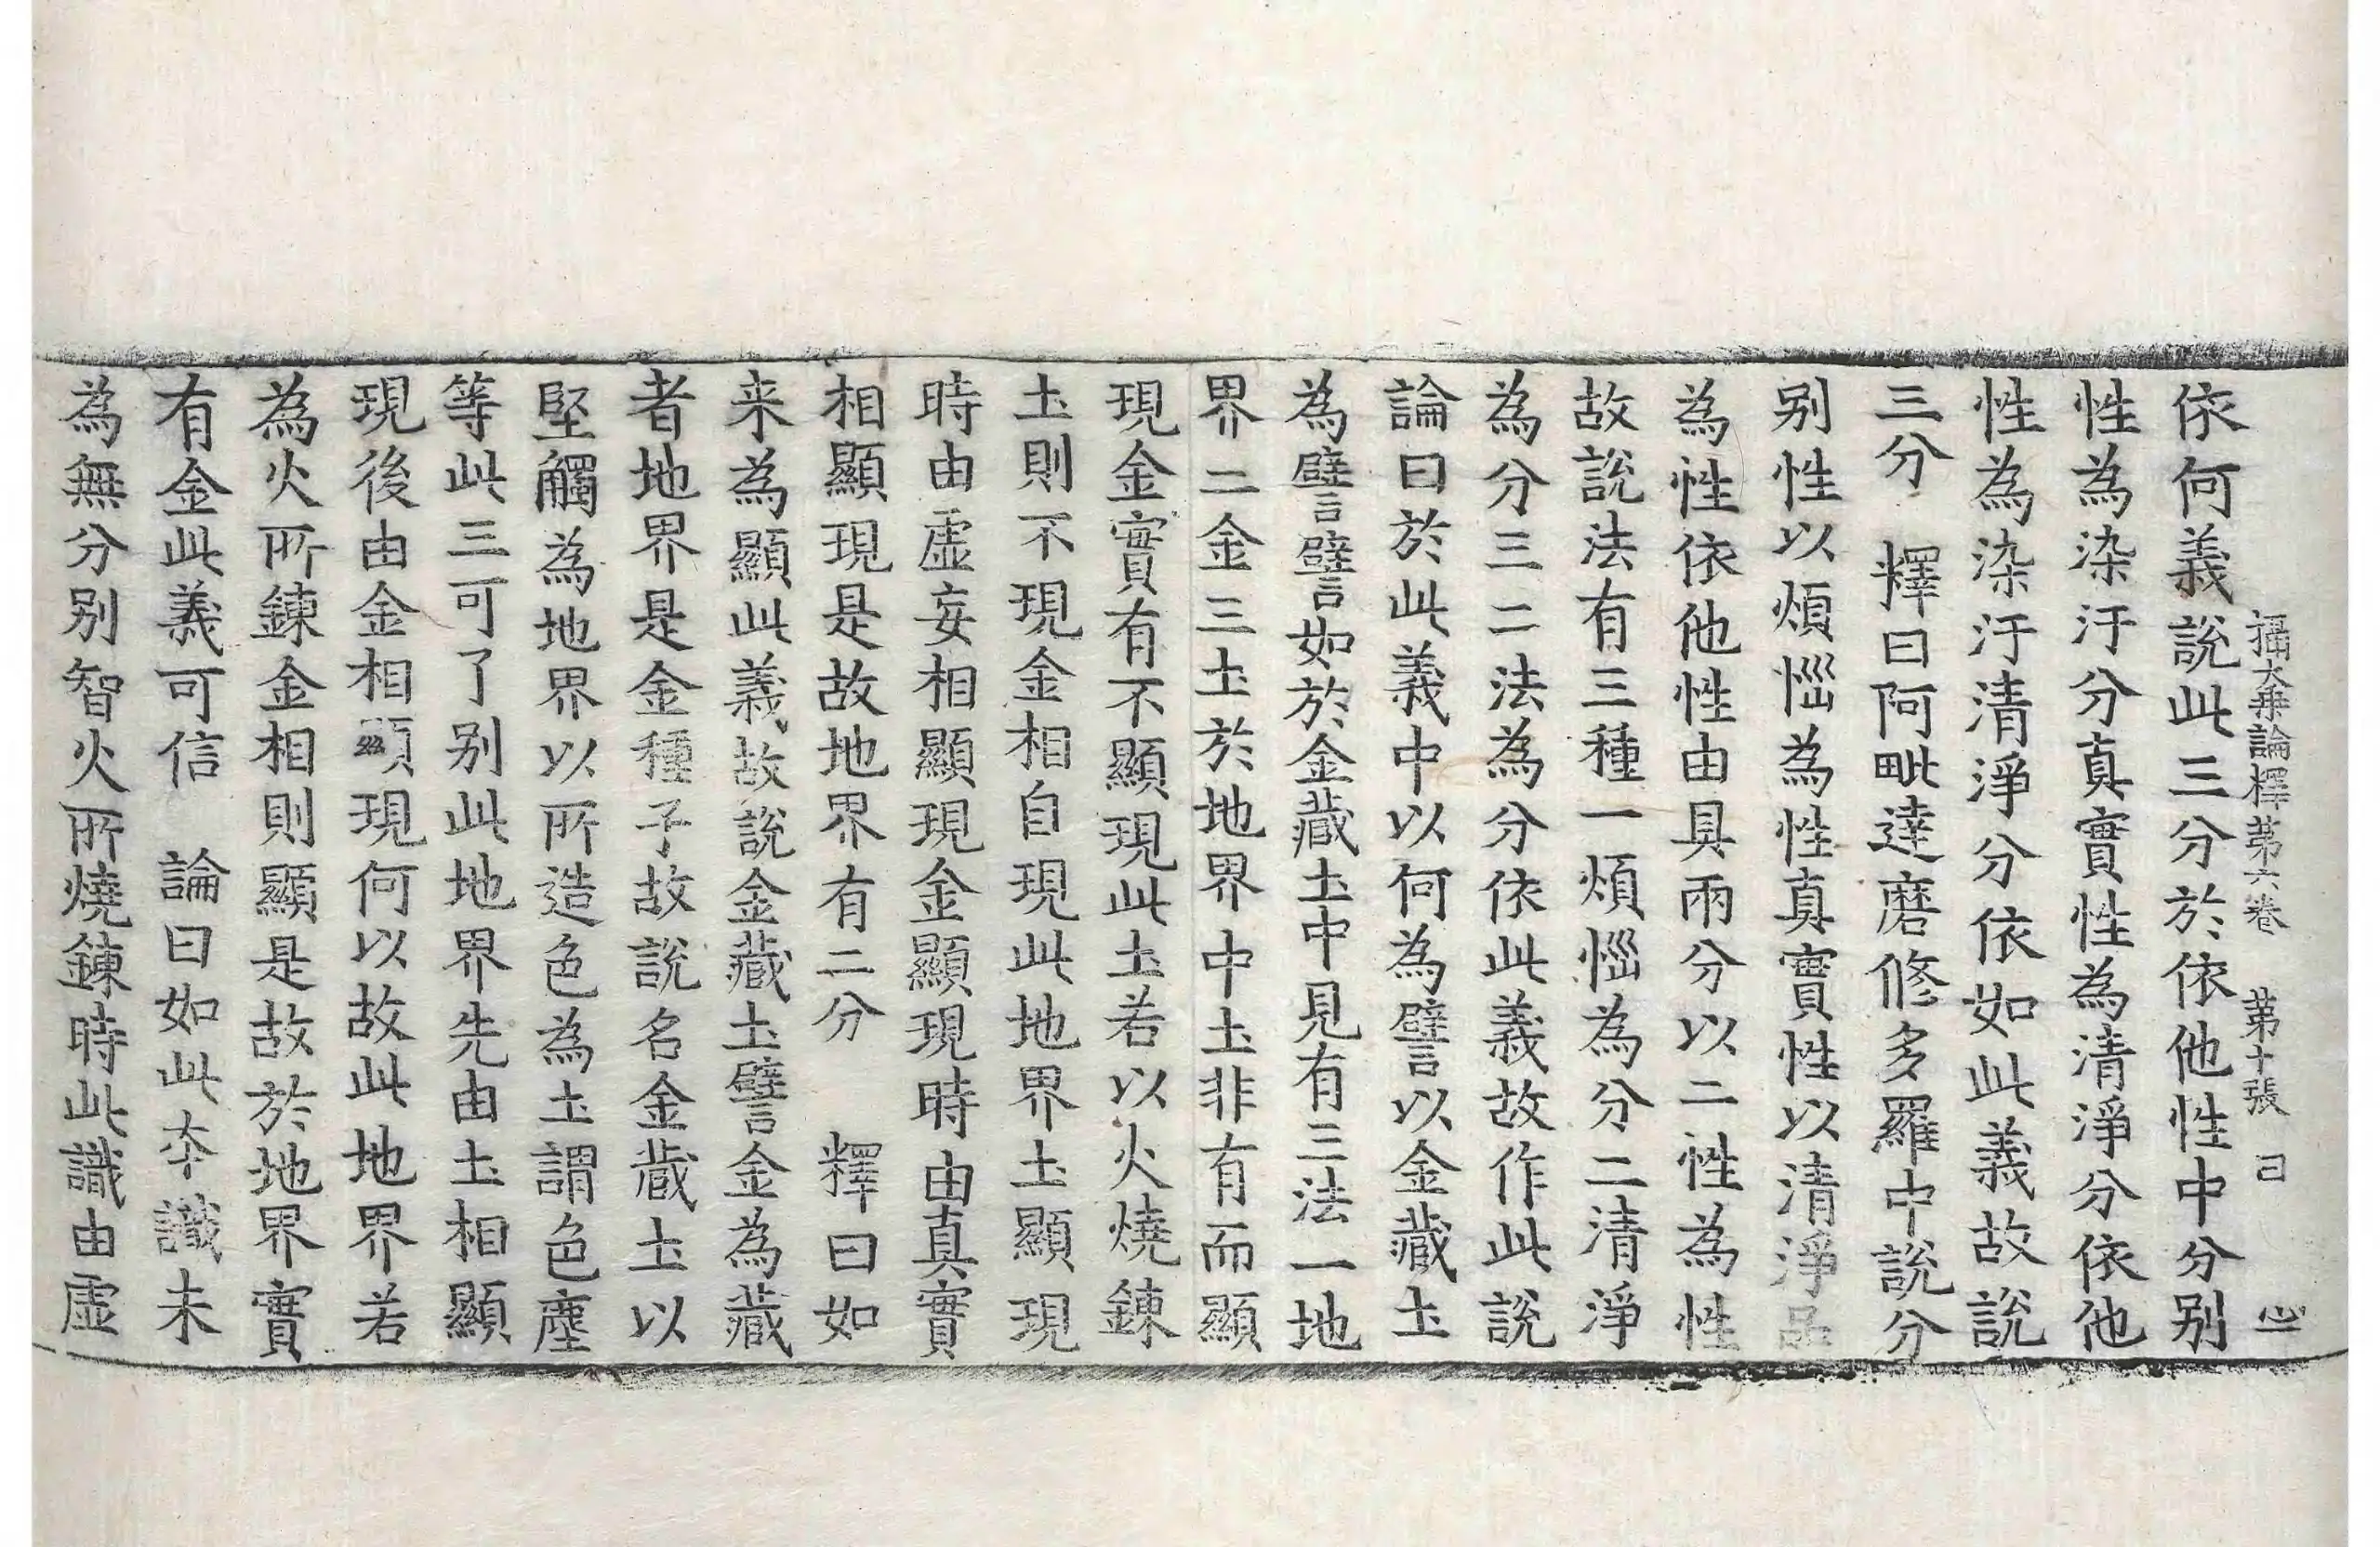 攝大乗論釋第六卷　第十張　彐　心
依何義說此三分於依他性中分别
性為染汙分真實性為清淨分依他
性為染汙清淨分依如此義故說
三分　釋曰阿毗達磨修多羅中說分
别性以煩惱為性真實性以清淨品
為性依他性由具兩分以二性為性
故說法有三種一煩惱為分二清淨
為分三二法為分依此義故作此說
論曰於此義中以何為譬以金藏土
為譬譬如於金藏土中見有三法一地
界二金三土於地界中土非有而顯
現金實有不顯現此土若以火燒鍊
土則不現金相自現此地界土顯現
時由虛妄相顯現金顯現時由真實
相顯現是故地界有二分　釋曰如
来為顯此義故說金藏土譬金為藏
者地界是金種子故說名金藏土以
堅觸為地界以所造色為土謂色塵
等此三可了别此地界先由土相顯
現後由金相顯現何以故此地界若
為火所鍊金相則顯是故於地界實
有金此義可信　論曰如此夲識未
為無分别智火所燒鍊時此識由虛